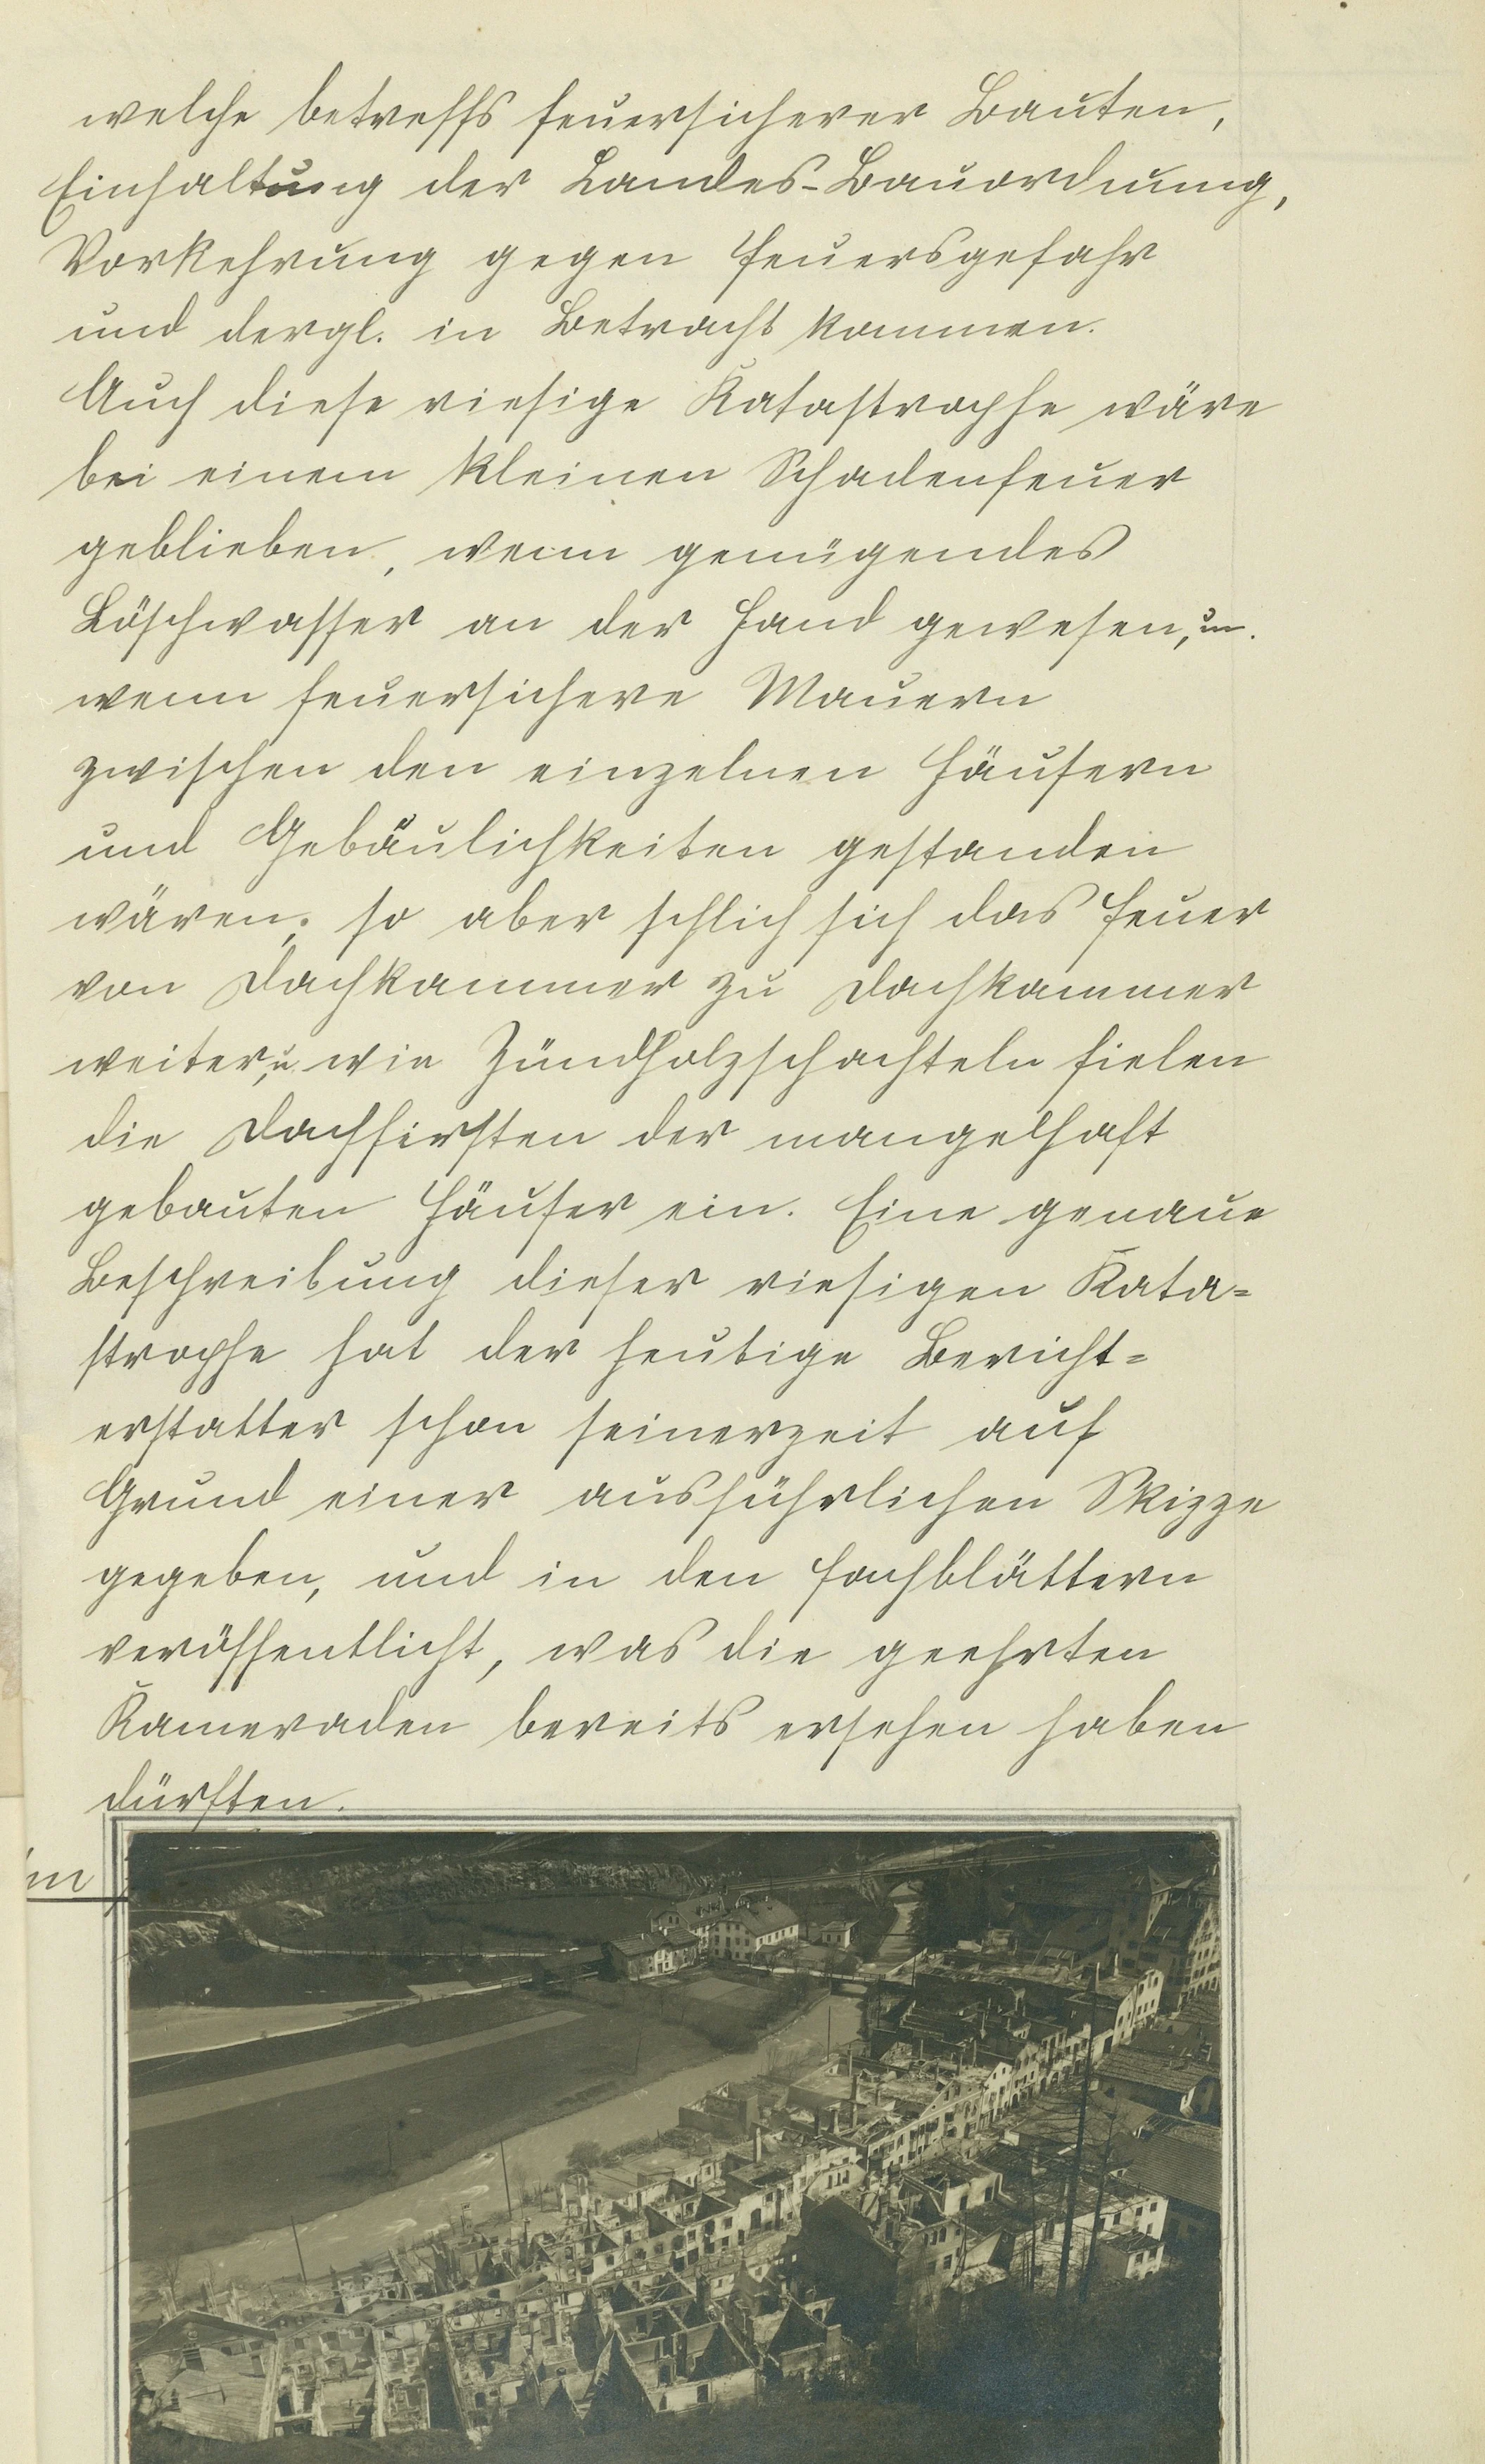 welche betreffs feuersicherer Bauten,
Einhaltung der Landes-Bauordnung,
Vorkehrung gegen Feuersgefahr
und dergl. in Betracht kommen.
Auch diese riesige Katastrophe wäre
bei einem kleinen Schadenfeuer
geblieben, wenn genügendes
Löschwasser an der Hand gewesen, u.
wenn feuersichere Mauern
zwischen den einzelnen Häusern
und Gebäulichkeiten gestanden
wären; so aber schlich sich das Feuer
von Dachkammer zu Dachkammer
weiter, u. wie Zündholzschachteln fielen
die Dachfirsten der mangelhaft
gebauten Häuser ein. Eine genaue
Beschreibung dieser riesigen Kata-
strophe hat der heutige Bericht-
erstatter schon seinerzeit auf
Grund einer ausführlichen Skizze
gegeben, und in den Fachblättern
veröffentlicht, was die geehrten
Kameraden bereits ersehen haben
dürften.